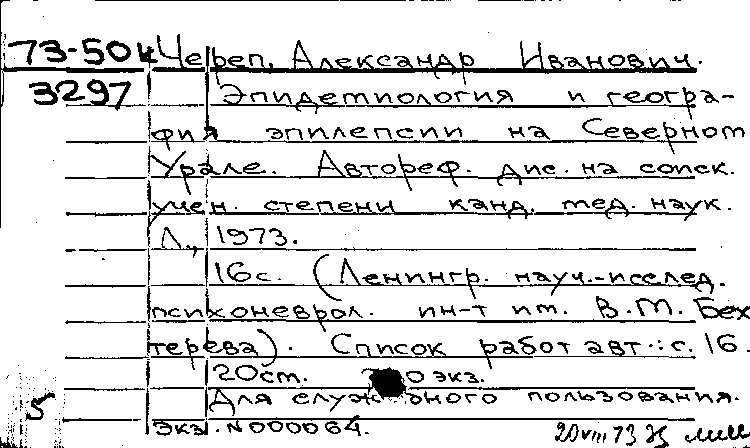 73-50к Череп, Александр Иванович.
3297 Эпидемиология и геогра-
фия эпилепсии на Северном
Урале. Автореф. дис. на соиск.
учен. степени канд. мед. наук.
Л., 1973.
16с. (Ленингр. науч.-исслед.
психоневрол. ин-т им. В.М. Бех
терева). Список работ авт.: с. 16.
20см. 0 экз.
Для служебного пользования.
5 Экз. N000064.
20 VIII 73